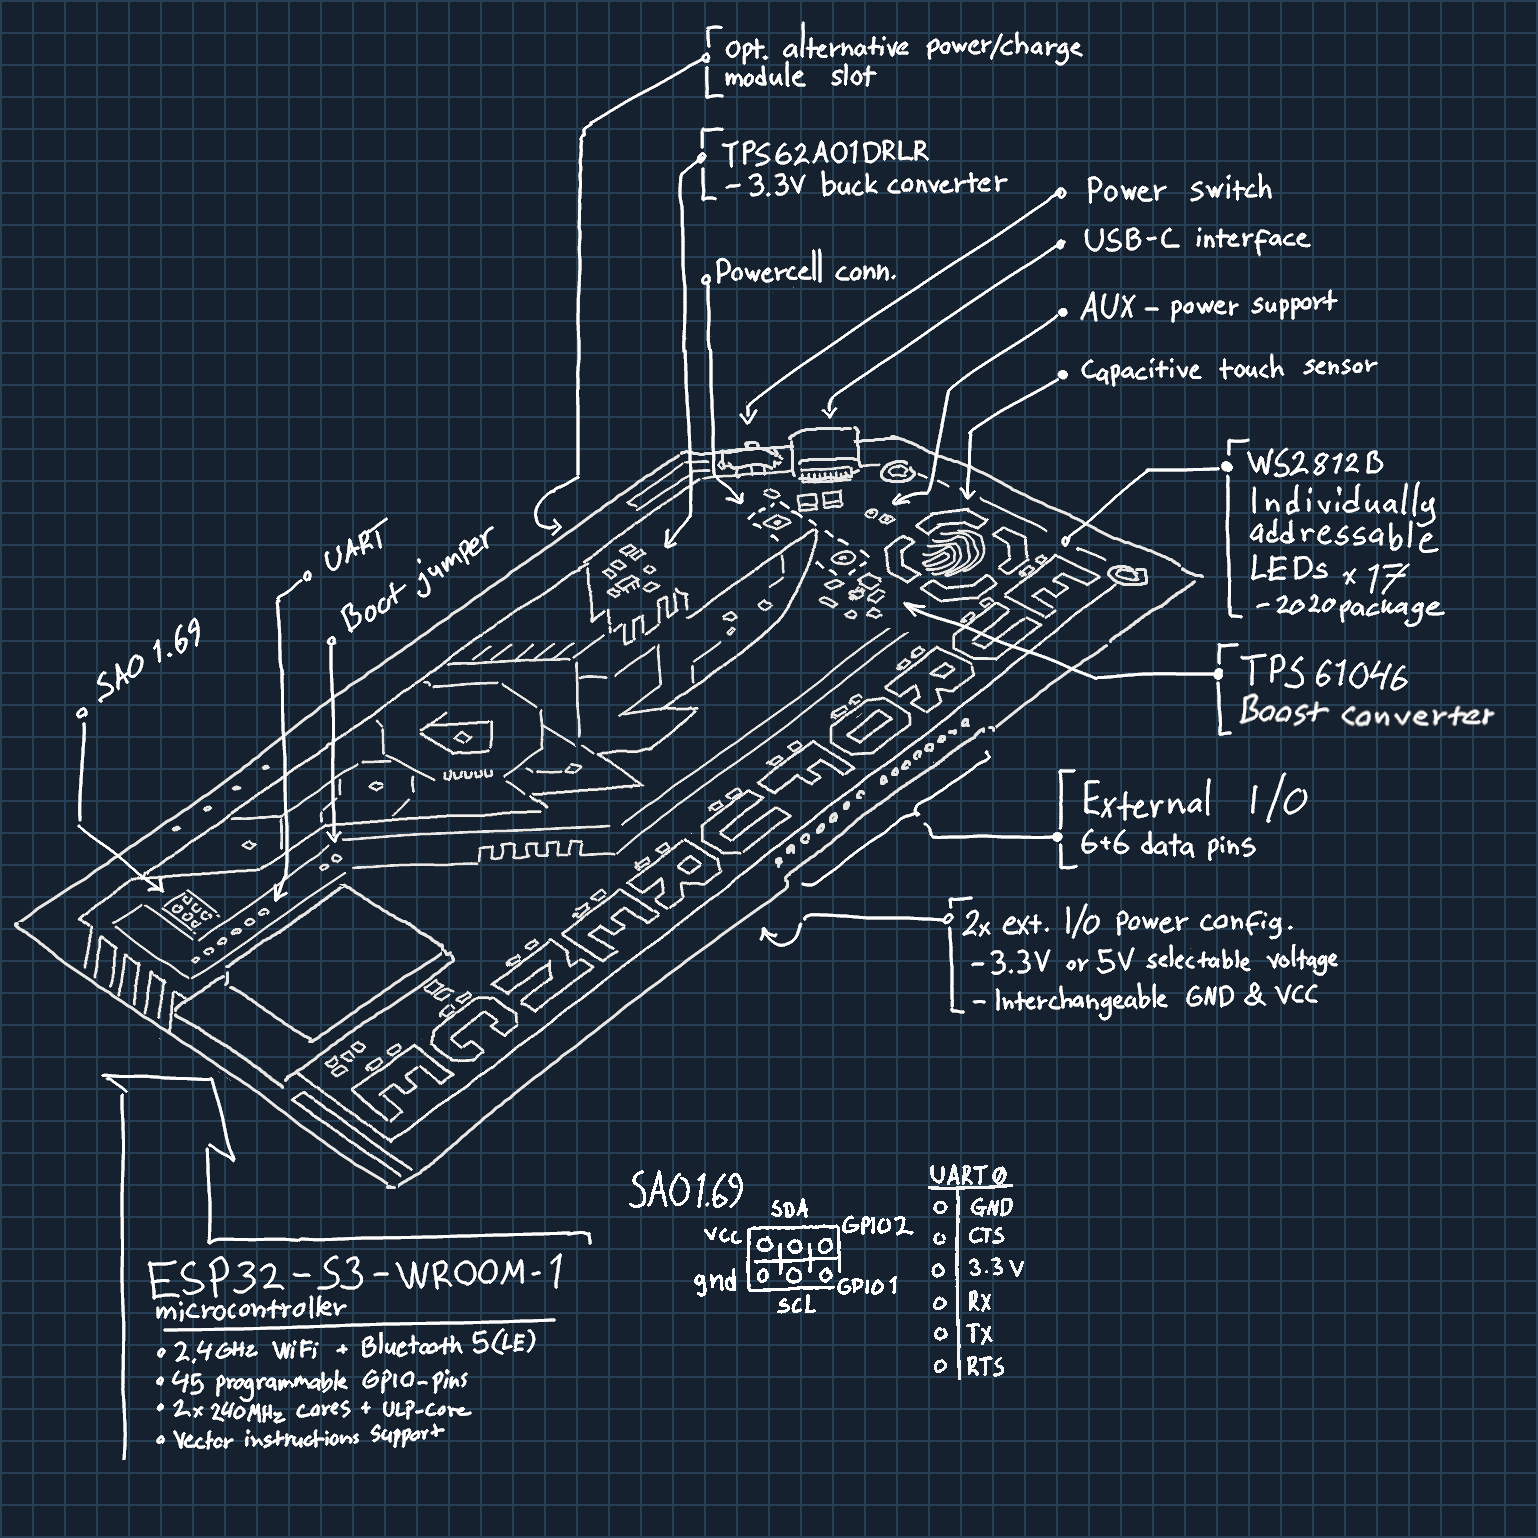 Opt. alternative power/charge
module slot
TPS62A01DRLR
- 3.3V buck converter
Powercell conn.
Power switch
USB-C interface
AUX - power support
Capacitive touch sensor
WS2812B
Individually
addressable
LEDs x 17
- 2020 package
TPS61046
Boost converter
UART
Boot jumper
SAO 1.69
External I/O
6+6 data pins
2x ext. I/O power config.
- 3.3V or 5V selectable voltage
- Interchangeable GND & VCC
ESP32-S3-WROOM-1
microcontroller
• 2,4GHz WiFi + Bluetooth 5(LE)
• 45 programmable GPIO-pins
• 2x 240MHz cores + ULP-core
• Vector instructions support
SAO1.69
SDA
VCC GPIO2
gnd GPIO1
SCL
UART0
GND
CTS
3.3V
RX
TX
RTS